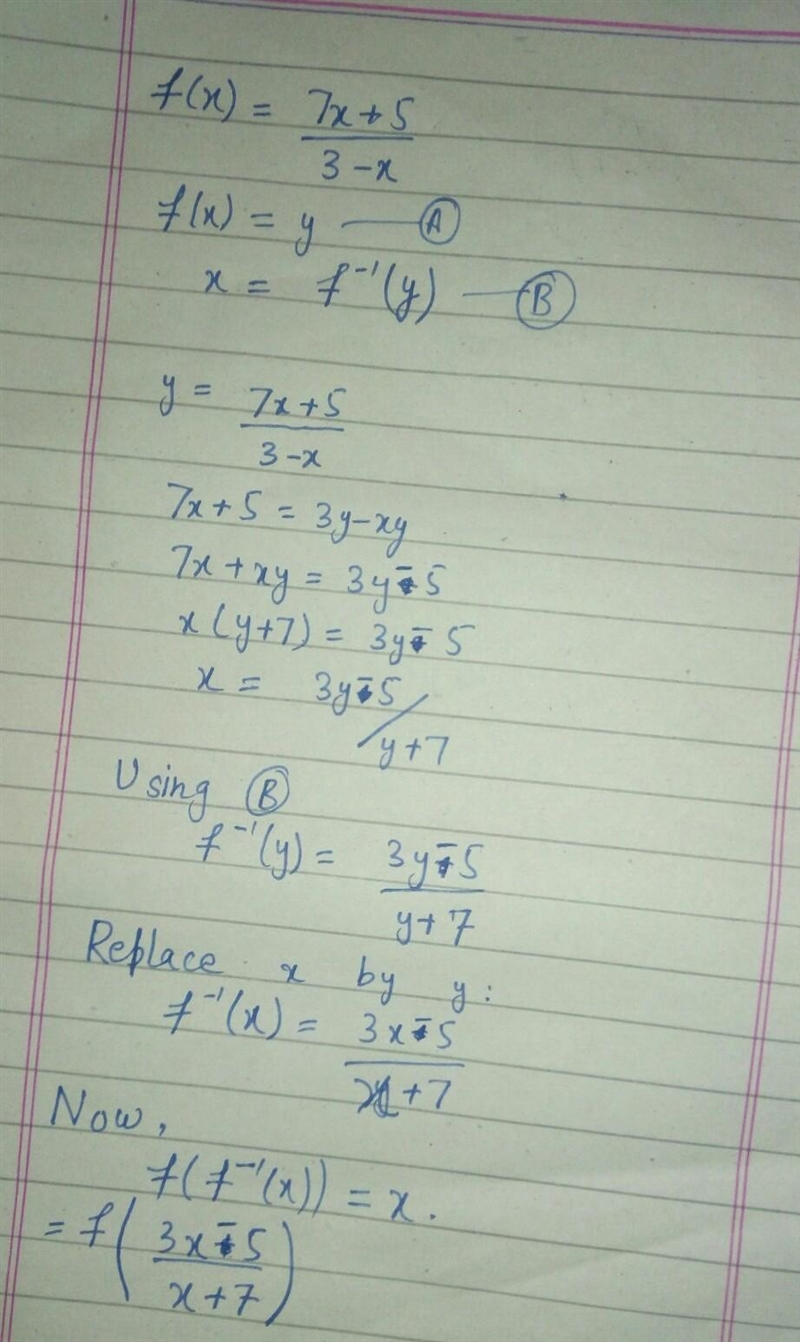 f(x) = 7x+5 / 3-x
f(x) = y — Ⓐ
x = f⁻¹(y) — Ⓑ
y = 7x+5 / 3-x
7x+5 = 3y-xy
7x+xy = 3y-5
x(y+7) = 3y-5
x = 3y-5 / y+7
Using Ⓑ
f⁻¹(y) = 3y-5 / y+7
Replace x by y:
f⁻¹(x) = 3x-5 / x+7
Now,
f(f⁻¹(x)) = x.
= f(3x-5 / x+7)